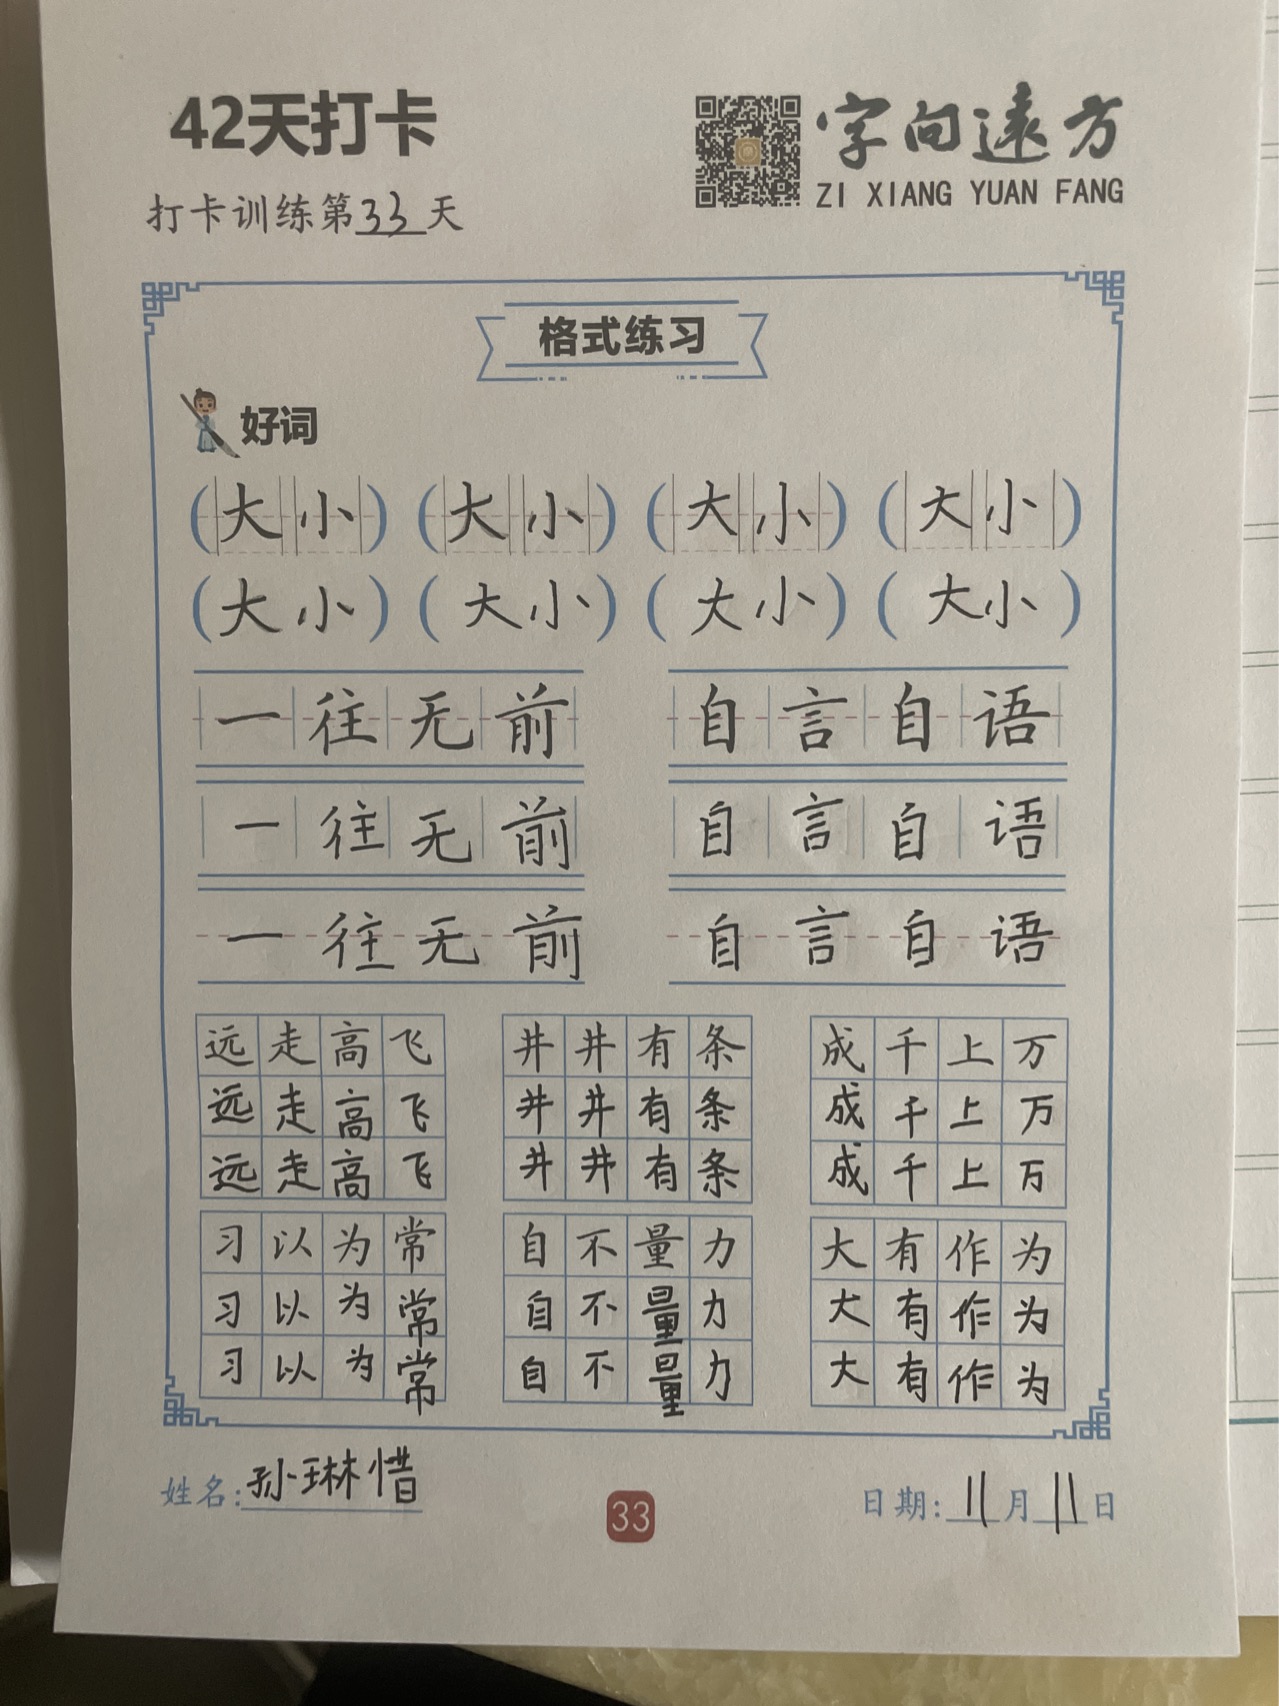 42天打卡
字向遠方
ZI XIANG YUAN FANG
打卡训练第33天
格式练习
好词
(大小) (大小) (大小) (大小)
(大小) (大小) (大小) (大小)
一往无前 自言自语
一往无前 自言自语
一往无前 自言自语
远走高飞 井井有条 成千上万
远走高飞 井井有条 成千上万
远走高飞 井井有条 成千上万
习以为常 自不量力 大有作为
习以为常 自不量力 大有作为
习以为常 自不量力 大有作为
姓名:孙琳惜 33 日期:11月11日